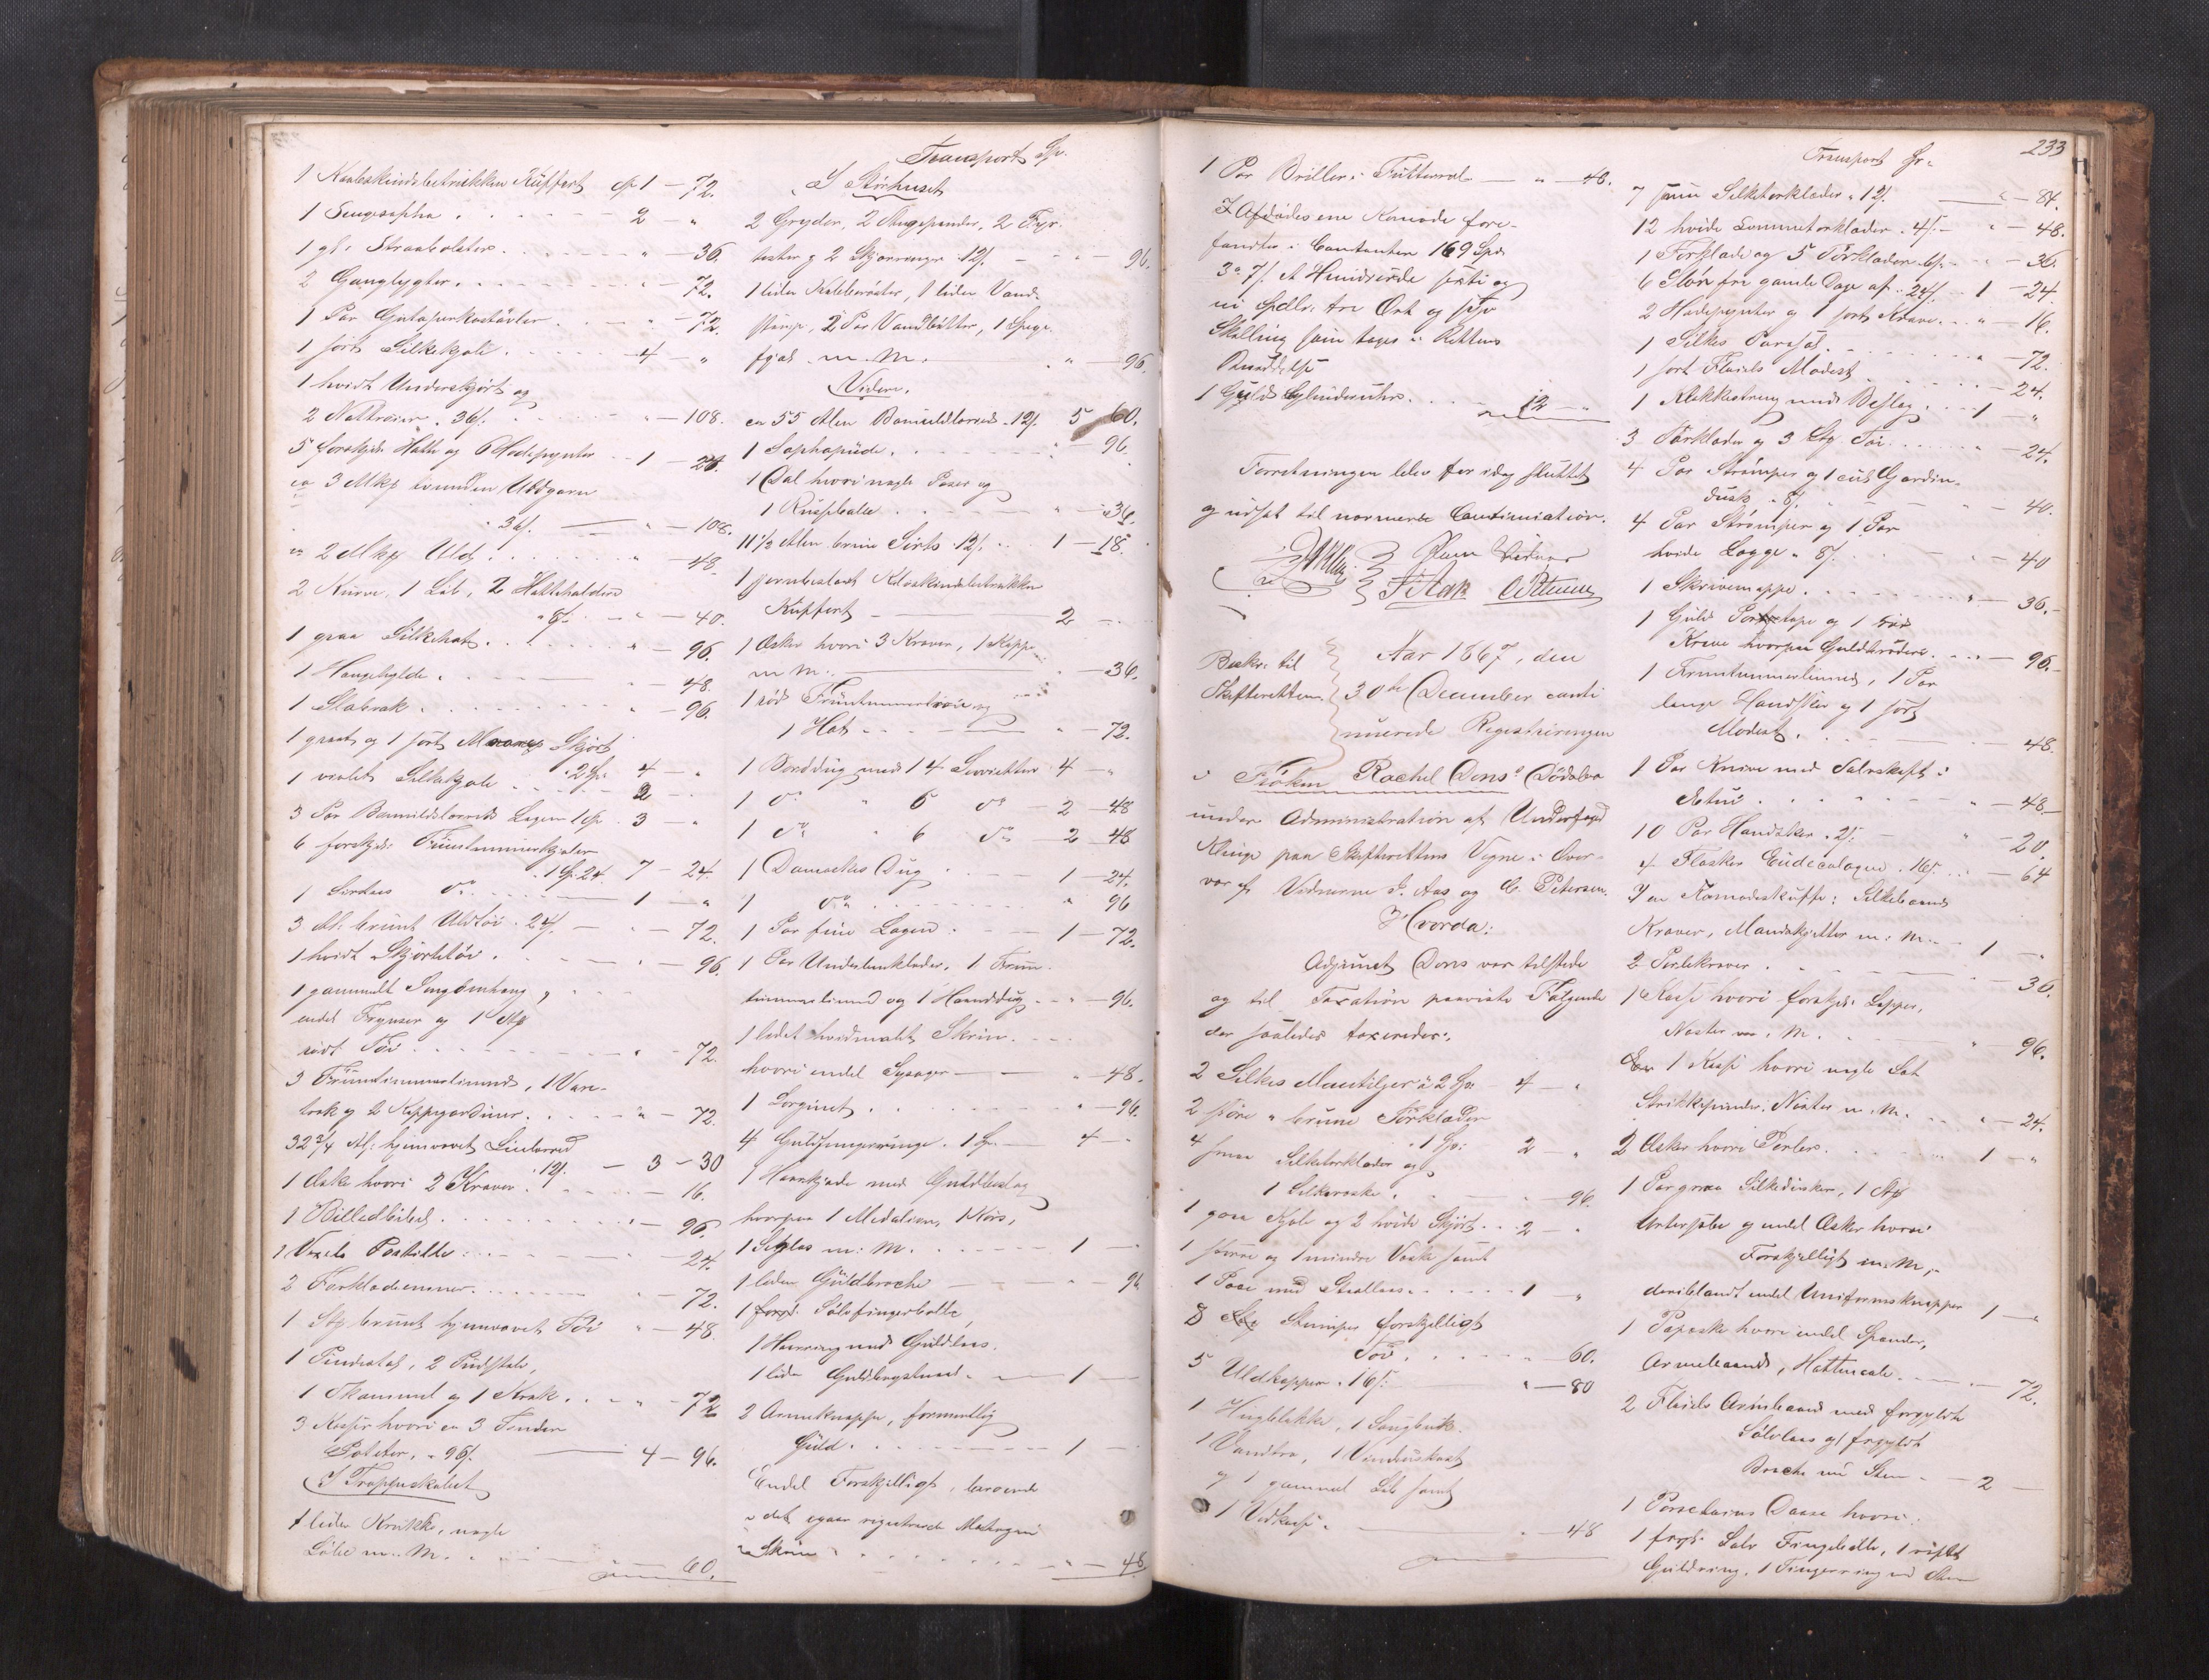 1 Kaabeskindsbetrukken Kuffert Sp 1 — 72.
1 Sengesopha . . . 2 — "
1 gl: Straabolster . . . " — 36.
2 Ganglygter . . . " — 72.
1 Par Gutaperkastøvler . . . — 72.
1 sort Silkekjole . . . 4 — "
1 hvidt Underskjørt og
2 Nattrøier . 36/. . . . " — 108.
5 forskjell: Hatte og 6 Hodepynter . . 1 — 24.
ca 3 Mkp tvunden Uldgarn
. 36/. — " — 108.
ca 2 Mkp Uld . . . " — 48.
2 Kurve, 1 Lib, 2 Hatteholdere
" 8/. . . — 40.
1 graa Silkehat . . . " — 96.
1 Hængehylde . . . — 48.
1 Slabrok . . . " — 96.
1 graat og 1 sort Skjørt
. 2 Sp: 4 — "
1 violet Silkekjole . . . 2 — "
3 Par Bomuldslærreds Lagen 1 Sp . 3 — "
6 forskjell: Fruentimmerkjoler
. 1 Sp. 24. 7 — 24.
1 Sirtses do . . . 1 — "
3 Al: brunt Uldtøi . 24/. — — 72.
1 hvidt Skjørtetøi . . . — 96.
1 gammelt Sengomhæng,
endel Frynser og 1 Stp
rødt Tøi . . . " — 72.
3 Fruentimmerlinned, 1 Vare-
trøk og 2 Kappgardiner . . . " — 72.
32 3/4 Al: hjemvævet Linlærred
12/. — 3 — 30
1 Æske hvori 2 Kraver . . . — 16.
1 Billedbibel . . . " — 96.
1 Vexels Postille . . . — 24.
2 Forklædeemner . . . — 72.
1 Stp brunt hjemvævet Tøi " — 48.
1 Pindestol, 2 Pudsstole,
1 Skammel og 1 Krak . . . — 72.
3 Kasser hvori ca 3 Tønder
Poteter, . 96/. — 4 — 96.
I Trappeskabet
1 liden Krukke, nogle
Løbe m. M. . . . — 60.
Transport Sp.
I Størhuset
2 Gryder, 2 Stegepander, 2 Fyr-
bester og 2 Skjørringer . 12/. — " — 96.
1 liden Kobberøster, 1 liden Vand-
stamp, 2 Par Vandbøtter, 1 Spege-
fjæl m. M. . " — 96.
Videre.
ca 55 Alen Bomuldlærred . 12/. 5 — 60.
1 Sophapude . . . " — 96.
1 Dal hvori nogle Poser og
1 Ruspballe . . . " — 36.
11 1/2 Alen brun Sirts . 12/. . . 1 — 18.
1 jernbeslaaet Kloskindsbetrukken
Kuffert — 2 — "
1 Æske hvori 3 Kraver, 1 Kappe
m M. — — 36.
1 rød Fruentimmertrøie og
1 Hat . . — " — 72.
1 Borddug med 14 Servietter . 4 — "
1 do " 6 do — 2 — 48
1 do " 6 do 2 — 48
1 Damaskes Dug . . . 1 — 24.
1 do . . . " 96
1 Par fine Lagen . — — 1 — 72.
1 Par Underbenklæder, 1 Fruen-
timmerlinned og 1 Haanddug . . " — 96.
1 lidet hvidmalt Skrin . . .
hvori endel Sysager — — " — 48.
1 Lorgnet . . . " — 96.
4 Guldfingerringe . 1 Sp. — 4 — "
1 Haarkjede med Guldbeslag
hvorpaa 1 Medalion, 1 Kors,
1 m: M. . . . 1 —
1 liden Guldbroche — — " — 96
1 forgt: Sølvfingerbølle
1 Haarring med Guldlaas.
1 liden Guldbrystnaal . — 1 —
2 Ærmeknapper, formentlig
Guld . . . 1 —
Endel Forskjelligt, beroende
i det igaar registrerede Mahogni
Skrin . . . " — 48.
1 Par Briller i Futteral — " — 48.
I Afdødes ene Komode fore-
fandtes i Contanter 169 Spd
3 ort 7/. et Hundrede sexti og
ni Spdlr. tre Ort og syv
Skilling som toges i Rettens
1 Guld Cylinderuhr . . . 12 — "
Forretningen blev for idag sluttet
og udsat til nærmere Continuation.
Aas C Petersen
Beskr. til
Skifteretten.
Aar 1867, den
30te December conti-
nuerede Registreringen
i Frøken Rachel Dons' Dødsbo
under Administration af Underfogd
Klinge paa Skifterettens Vegne i Over-
vær af Vidnerne J. Aas og C. Petersen.
Hvorda:
Adjunct Dons var tilstede
og til Taxation paaviste Følgende
der saaledes taxeredes:
2 Silkes Mantiljer à 2 Sp. 4 — "
2 store " brune Tørklæder
. 1 Sp: 2 — "
4 smaa Silketørklæder og
1 Silkevæske . . . — 96.
1 graa Kjole og 2 hvide Skjørt . . 2 — "
1 større og 1 mindre Væske samt
1 Pose med Strallers . . . . 1 — "
8 Stumper forskjelligt
Tøi . . . — 60.
5 Uldkapper . 16/: " — 80
1 , 1 Sengbænk.
1 Vandtro, 1 Vinduskost
og 1 gammel Lib samt
1 Vedkasse . — " — 48
233
Transport Sp.
7 smaa Silketørklæder . 12/. — " — 84.
12 hvide Lommetørklæder . 4/. — " — 48.
1 Forklæde og 5 Tørklæder . 6/. — " — 36.
6 Slør fra gamle Dage af . 24/. — 1 — 24.
2 Hodepynter og 1 sort Krave . . . " — 16.
1 Silkes Parasol . . . " — 72.
1 sort Fløiels Modest . . . — 24.
1 Klokkestreng med Beslag . . . 1 — "
3 Tørklæder og 3 Stp Tøi . . . " — 24.
4 Par Strømper og 1 Gardin-
dusk . 8/. . . . — 40.
4 Par Strømper og 1 Par
hvide Lugge . 8/. . . . — 40
1 Skrivemappe . . . " — 36.
1 Guld og 1
Krave hvorpaa Guldbroderi . . . — 96.
1 Fruentimmerlinned, 1 Par
lange Handsker og 1 sort
Modest . . . — 48.
1 Par Knive med Sølvskaft i
Etui . . . " — 48
10 Par Handsker . 2/: — " — 20.
4 Flasker Eudecologne . 16/. . . — 64
I en Komodeskuffe: Silkebaand
Kraver, Mandskjetter m: M. — 1 — "
2 Perlekraver . . . — 36.
1 Kasse hvori forskjell: Lapper,
Nøster m. M. . . . " — 96.
1 Kasse hvori nogle Sæt
Strikkepinder: Nøster m. M. . . . — 24.
2 Æsker hvori Perler . . . 1 — "
1 Par graa Silkedusker, 1 Stp
og endel Æsker hvori
Forskjelligt m. M.,
deriblandt endel Uniformsknapper 1 — "
1 Papæske hvori endel Spænder,
Armbaand, Hattenaale . . . — 72.
2 Fløiels Armbaand med forgyldte
Sølvlaas og 1 forgyldt
Broche med Sten . . — 2 —
1 Porcelains Daase hvori:
1 forgt. Sølv Fingerbølle, 1 ridset
Guldring, 1 Fingerring med Sten